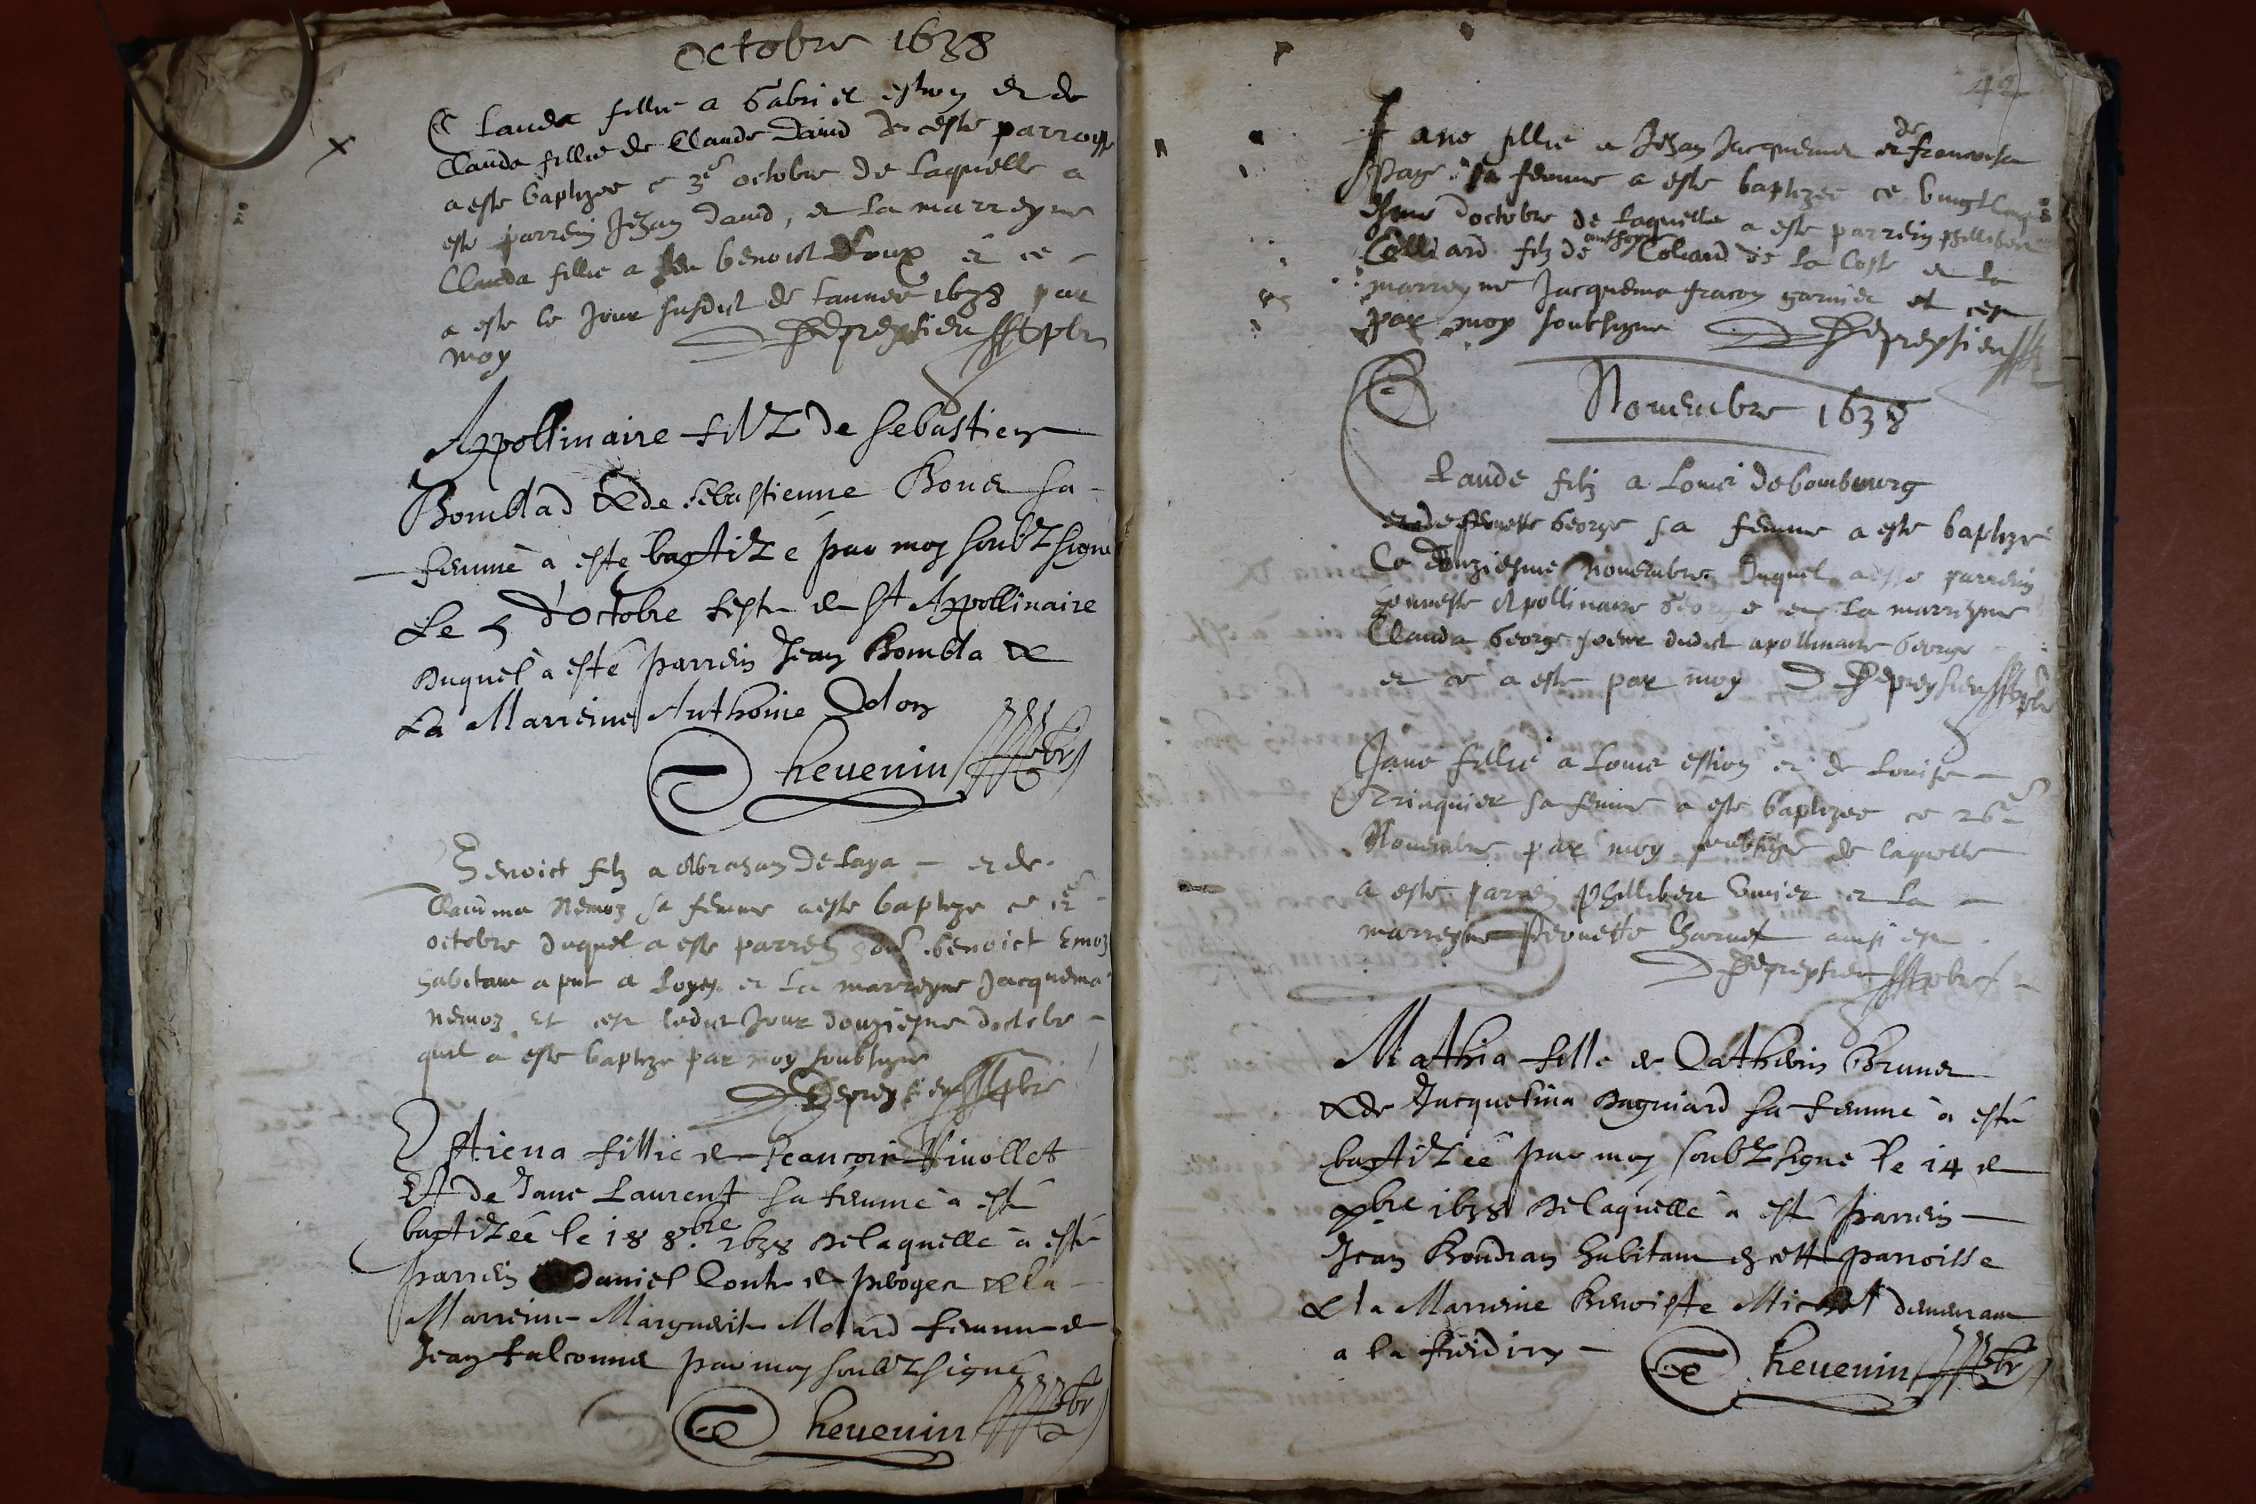 Octobre 1638
Clauda fillie a Gabriel estion et de
Clauda fillie de Claude David de ceste parroisse
a este baptizee ce 3e octobre de laquelle a
este parrein Jehan David, et la marreyne
Clauda fillie a feu benoist Doux et ce
a este le Jour susdict de lannee 1638 par
moy Depreysieu pbr
Appollinaire filz de sebastien
Bomblad & de sebastienne Bonet sa
femme à este baptizé par moy soubzsigne
Le 5 d'octobre feste de St Appollinaire
Duquel à esté parrein Jean Bombla &
La Marreine Anthoine Odon
Thevenin pbr
Benoict filz a Abraham Delaya et de
Clauma Nemoz sa femme a este baptize ce 12e
octobre duquel a este parrein benoict Emoz
habitant a pnt a Loyes et la marreyne Jacquema
Nemoz Et ce ledict Jour douziesme doctobre
quil a este baptize par moy soubsigne
Depreysieu pbre
Estiena fillie de Francois Rivollet
Et de Jane Laurent sa femme à esté
baptizeé le 18 8.bre 1638 Delaquelle à esté
parrein Daniel Conte de & la
Marreine Marguerite Molard femme de
Jean falconnet par moy soubzsigné
Thevenin pbr
42
Jane fillie a Jehan Jacquemet et de francoisa
Page sa femme a este baptizee ce vingt
esme doctobre de laquelle a este parrein phillibert
Colliard filz de anthoine Coliard de la Coste et la
marreyne Jacquema fracon garnier et ce
par moy soubsigne Depreysieu pbr
Novembre 1638
Claude filz a Louis debombourg
et de George sa femme a este baptize
Ce Douziesme Novembre Duquel a este parrein
honneste Apollinaire George et la marreyne
Clauda George soeur dudict apollinaire George
et ce a este par moy Depreysieu pbr
Jane fillie a Louis estion et de Louise
Trinquier sa femme a este baptizee ce 26e
Novembre par moy soubsigne de laquelle
a este parrein phillibert Vivier et la
marreyne Pernette Charvet ainsi est
Depreysieu pbre
Mathia fille de Catherin Brunet
& de Jacquelina Dagniard sa femme à esté
baptizeé par moy soubzsigné le 14 de
xbre 1638 Delaquelle à esté parrein
Jean Boudran habitant en cette parroisse
& la Marreine Benoiste Michel demeurant
a la
Thevenin pbr